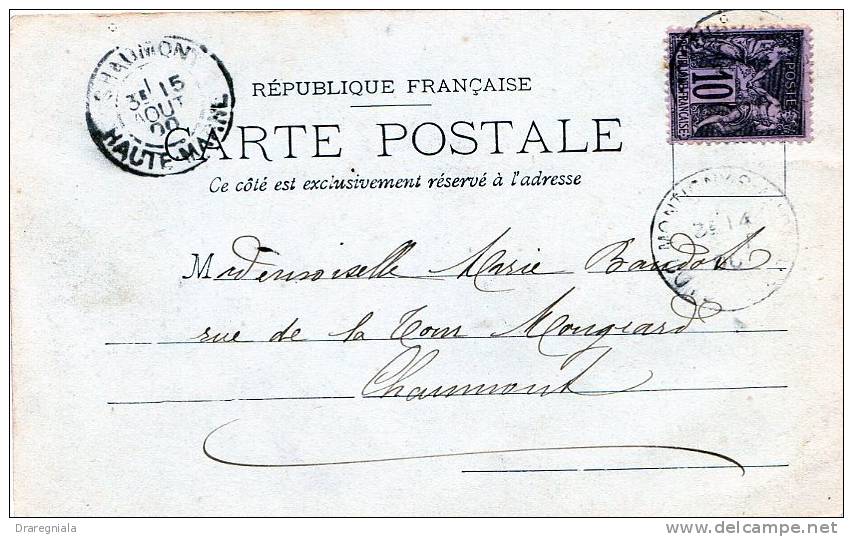 CHAUMONT
3E 15
AOUT
00
HAUTE MARNE
RÉPUBLIQUE FRANÇAISE
CARTE POSTALE
Ce côté est exclusivement réservé à l'adresse
10
POSTES
MONTIGNY
14
Mademoiselle Marie Baudot
rue de la Tour Mougeard
Chaumont
Draregniala
delcampe.net